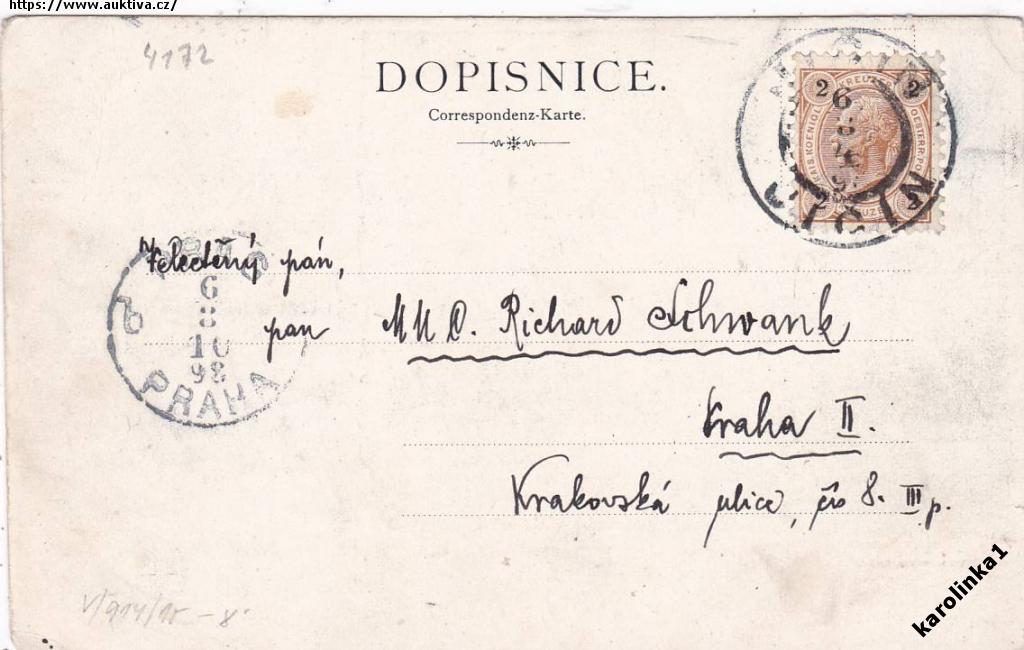 https://www.auktiva.cz/
4172
DOPISNICE.
Correspondenz-Karte.
2 KREUZER 2
KAIS. KOENIGL. OESTERR. PO
2 KREUZER 2
JIČÍN
6
8
98
Velectěný pán,
pan MUC. Richard Schwank
Praha II.
Krakovská ulice, čís 8. III p.
6
8
10
98
PRAHA
karolinka1